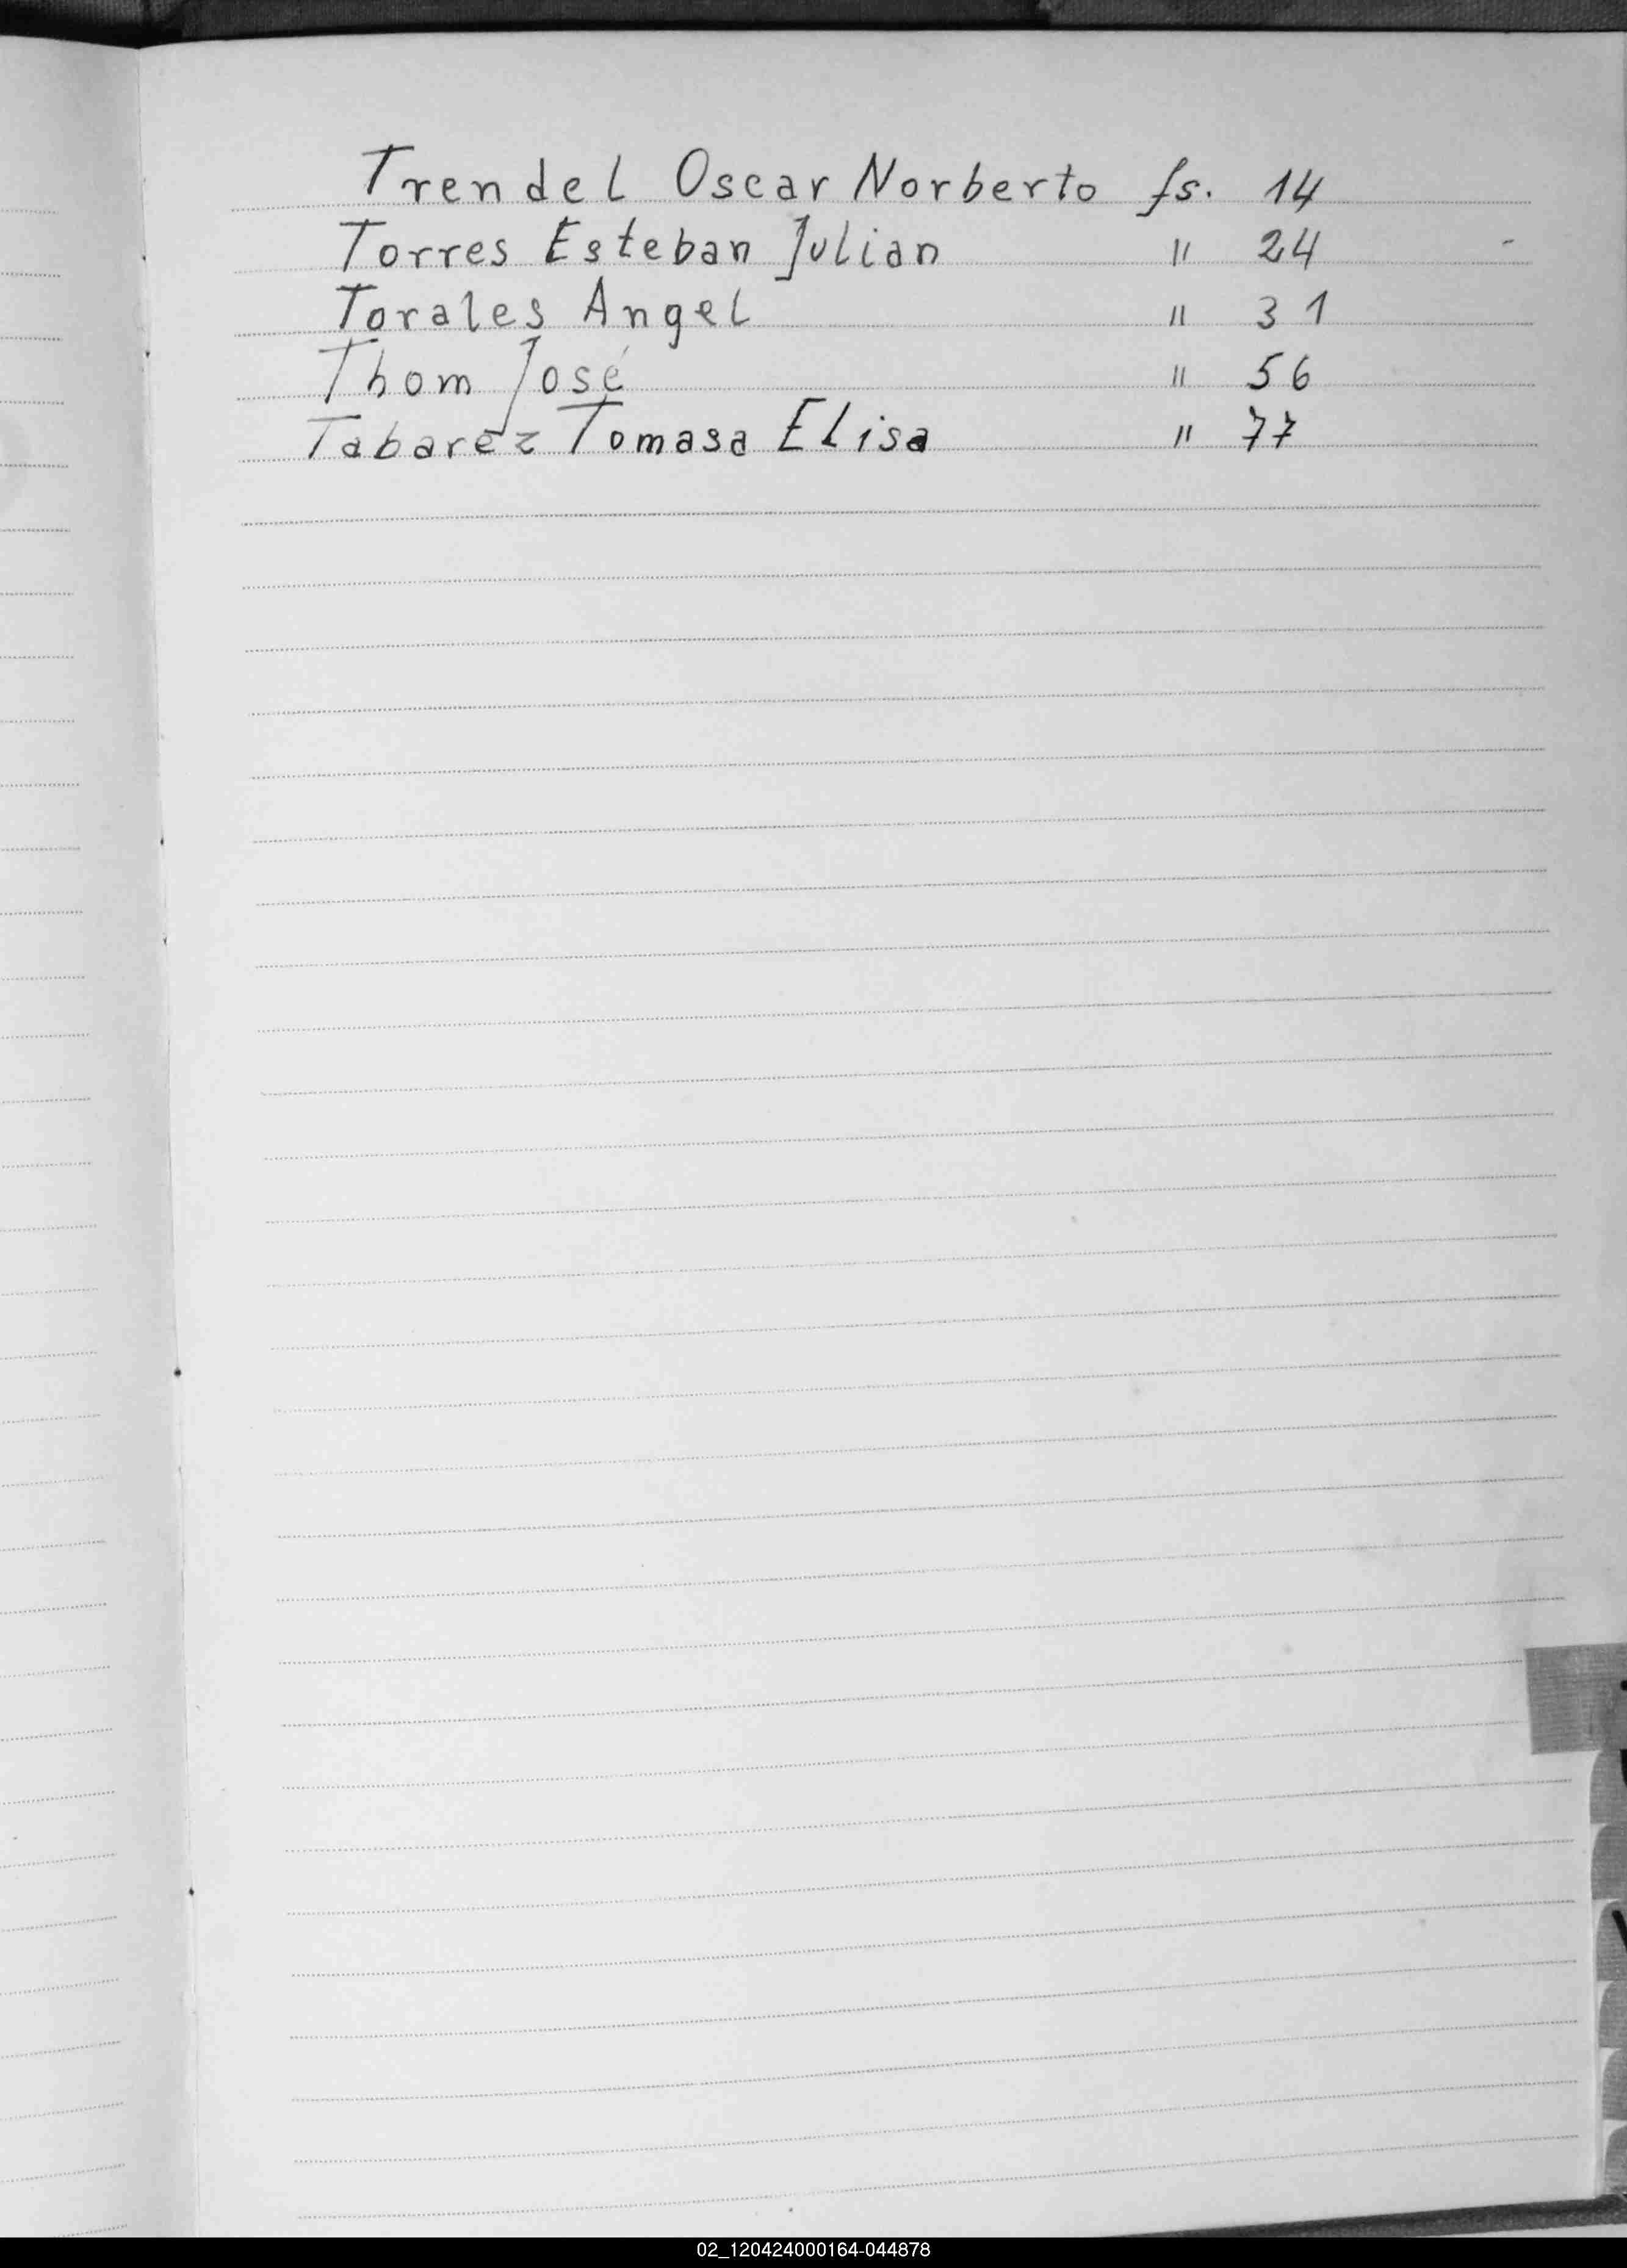 Trendel Oscar Norberto fs. 14
Torres Esteban Julian " 24
Torales Angel " 31
Thom José " 56
Tabarez Tomasa Elisa " 77
02_120424000164-044878